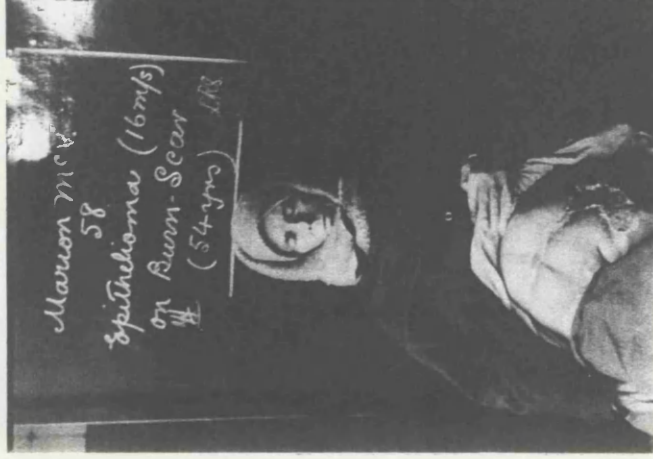 Marion McA.
58
Epithelioma (16m/s)
on Burn-Scar
(54 yrs)